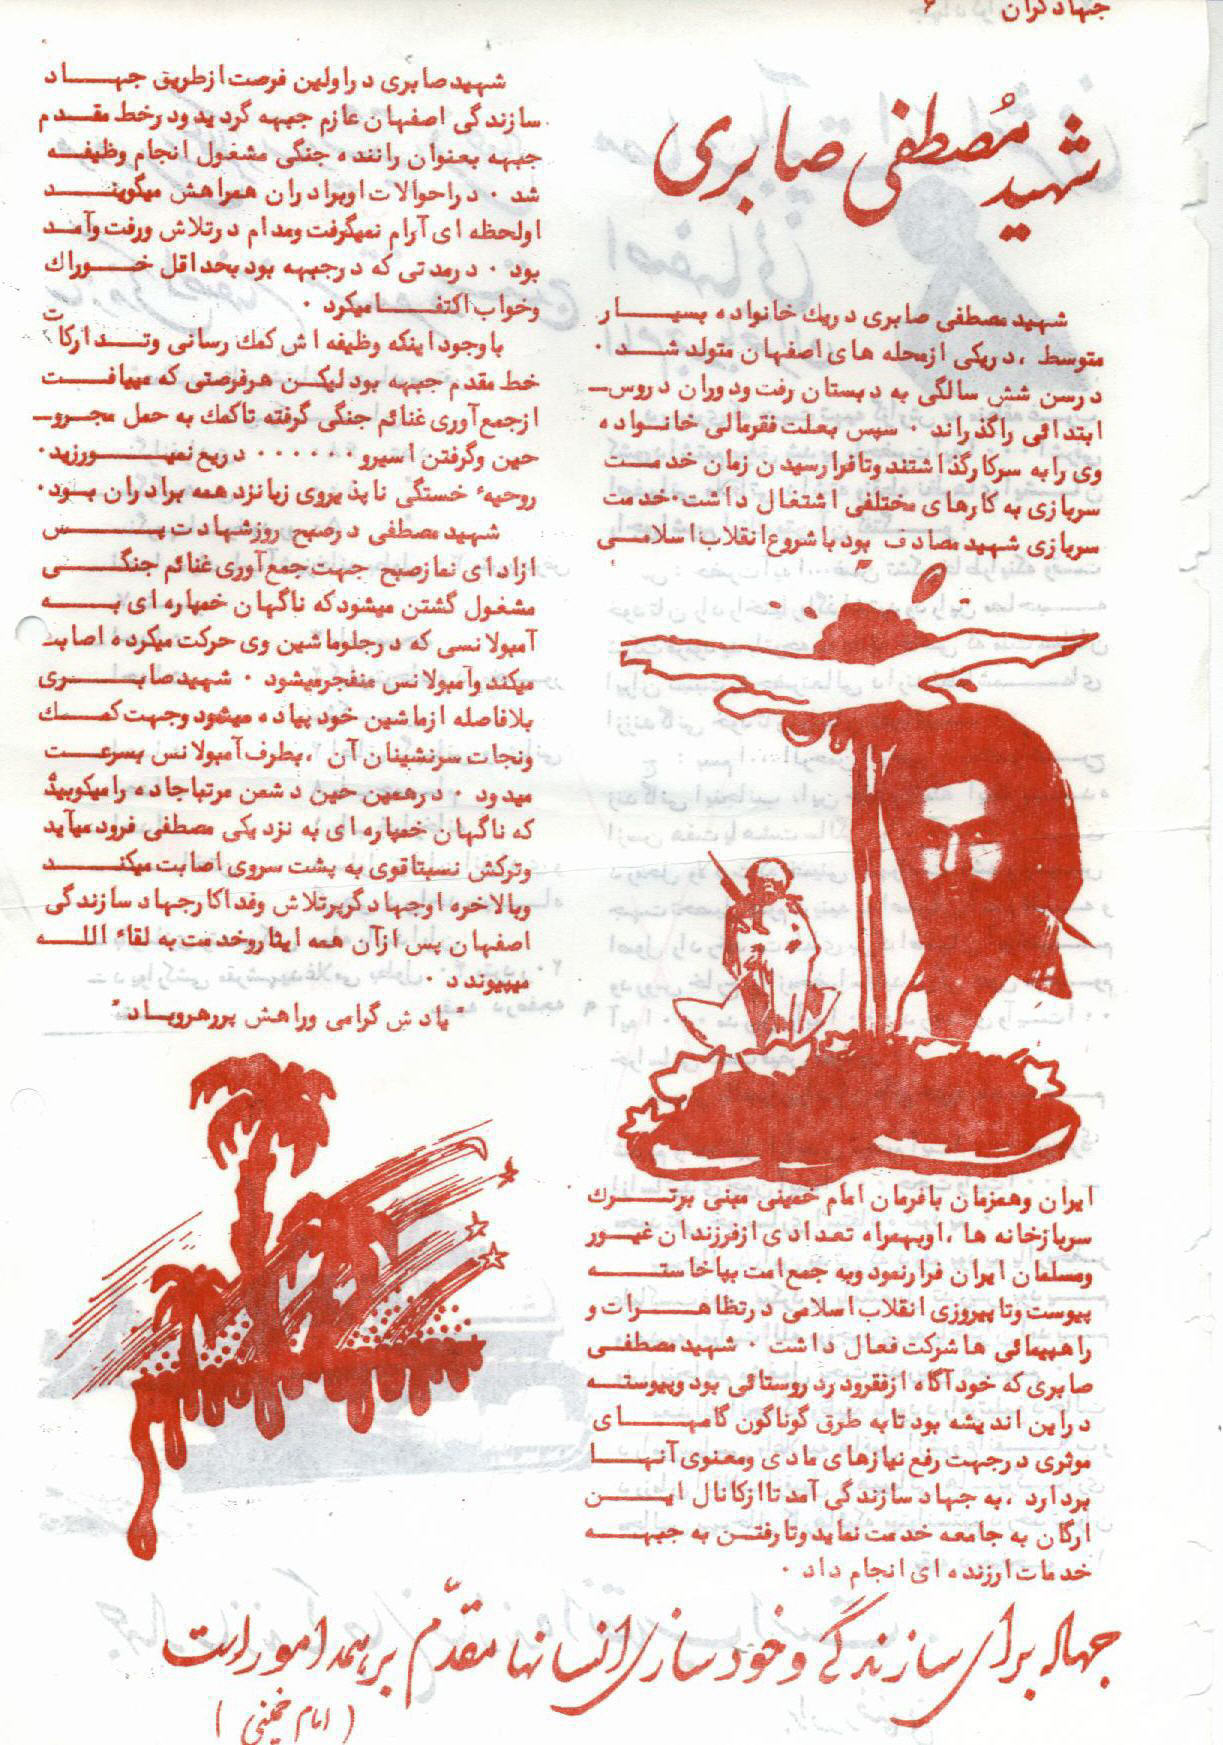 جهادگران ۶
شهید مُصطفی صابری
شهید مصطفی صابری دریك خانواده بسیــــار
متوسط ،دریکی ازمحله های اصفهان متولد شـــد ۰
درسن شش سالگی به دبستان رفت ودوران دروس
ابتدائی راگذراند ۰ سپس بعلت فقرمالی خانـواده
وی رابه سرکارگذاشتند وتافرارسیدن زمان خدمــت
سربازی به کارهای مختلفی اشتغال داشت۰خدمت
سربازی شهیدمصادف بودباشروع انقلاب اسلامــی
ایران وهمزمان بافرمان امام خمینی مبنی برتــرك
سربازخانه ها ،اوبهمراه تعدادی ازفرزندان غیــور
ومسلمان ایران فرارنمود وبه جمع امت بپاخاستــه
پیوست وتاپیروزی انقلاب اسلامی درتظاهــرات و
راهپیمائی هاشرکت فعال داشت ۰ شهید مصطفــی
صابری که خودآگاه ازفقرودرد روستائی بود وپیوستــه
دراین اندیشه بود تابه طرق گوناگون گامهــای
موثری درجهت رفع نیازهای مادی ومعنوی آنهــا
بردارد ،به جهاد سازندگی آمد تاازکانال ایــن
ارگان به جامعه خدمت نماید وتارفتــن به جبهــه
خدمات ارزنده ای انجام داد ۰
شهید صابری دراولین فرصت ازطریق جهــاد
سازندگی اصفهان عازم جبهه گردید ودرخط مقــدم
جبهه بعنوان راننده جنگی مشغول انجام وظیفــه
شد ۰ دراحوالات اوبرادران همراهش میگوینــد
اولحظه ای آرام نمیگرفت ومدام درتلاش ورفت وآمــد
بود ۰ درمدتی که درجبهه بود بحداقل خــوراك
وخواب اکتفــامیکرد ۰
باوجود اینکه وظیفه اش کمك رسانی وتــدارکات
خط مقدم جبهه بود لیکــن هرفرصتی که مییافــت
ازجمع آوری غنائم جنگی گرفته تاکمك به حمل مجرو
حین وگرفتن اسیرو۰۰۰۰۰۰ دریغ نمیــورزید۰
روحیهٔ خستگی ناپذیروی زبانزد همه برادران بــود۰
شهید مصطفی درصبح روزشهادت پــس
ازادای نمازصبح جهت جمع آوری غنائم جنگــی
مشغول گشتن میشود که ناگهان خمپاره ای بــه
آمبولانسی که درجلوماشین وی حرکت میکرده اصابت
میکند وآمبولانس منفجرمیشود ۰ شهید صابــری
بلافاصله ازماشین خود پیاده میشود وجهت کمــك
ونجات سرنشینان آن ،بطرف آمبولانس بسرعــت
میدود ۰ درهمین حین دشمن مرتباجاده رامیکوبید
که ناگهان خمپاره ای به نزدیکی مصطفی فرود میآید
وترکش نسبتاقوی به پشت سروی اصابت میکنــد
وبالاخره اوجهادگرپرتلاش وفداکارجهاد سازندگی
اصفهان پس ازآن همه ایثاروخدمت به لقاء اللــه
میپیوندد ۰
"یادش گرامی وراهش پررهروبــاد"
جهاد برای سازندگی و خودسازی انسانها مقدّم بر همه امور است
( امام خمینی )